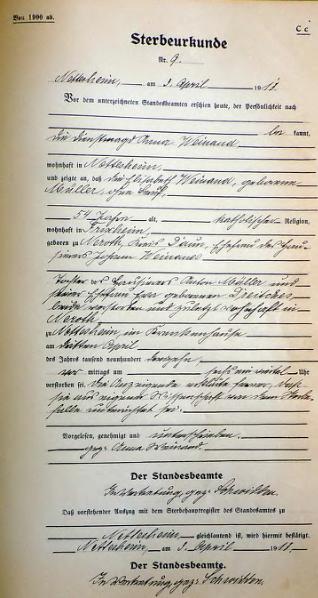 Von 1900 ab.
C c
Sterbeurkunde
Nr. 9.
Nettersheim, am 3. April 1911.
Vor dem unterzeichneten Standesbeamten erschien heute, der Persönlichkeit nach
be kannt,
die Dienstmagd Anna Weinand
wohnhaft in Nettersheim,
und zeigte an, daß die Elisabeth Weinand, geborenen
Müller, ohne Beruf,
54 Jahre alt, katholischer Religion,
wohnhaft in Frohnheim,
geboren zu Neroth, Kreis Daun, Ehefrau des
Weinand
Tochter des Anton Müller und
seiner Ehefrau Eva geborenen
beide verstorben und zuletzt wohnhaft in
Neroth,
zu Nettersheim, im Krankenhause
am dritten April
des Jahres tausend neunhundert
vor mittags um Uhr
verstorben sei. Die Anzeigende erklärte ferner, daß
sie aus eigener Wissenschaft von dem Sterbe-
falle unterrichtet sei.
Vorgelesen, genehmigt und unterschrieben.
gez: Anna Weinand.
Der Standesbeamte
In Vertretung, gez:
Daß vorstehender Auszug mit dem Sterbehauptregister des Standesamtes zu
Nettersheim gleichlautend ist, wird hiermit bestätigt.
Nettersheim, am 3. April 1911.
Der Standesbeamte.
In Vertretung, gez: